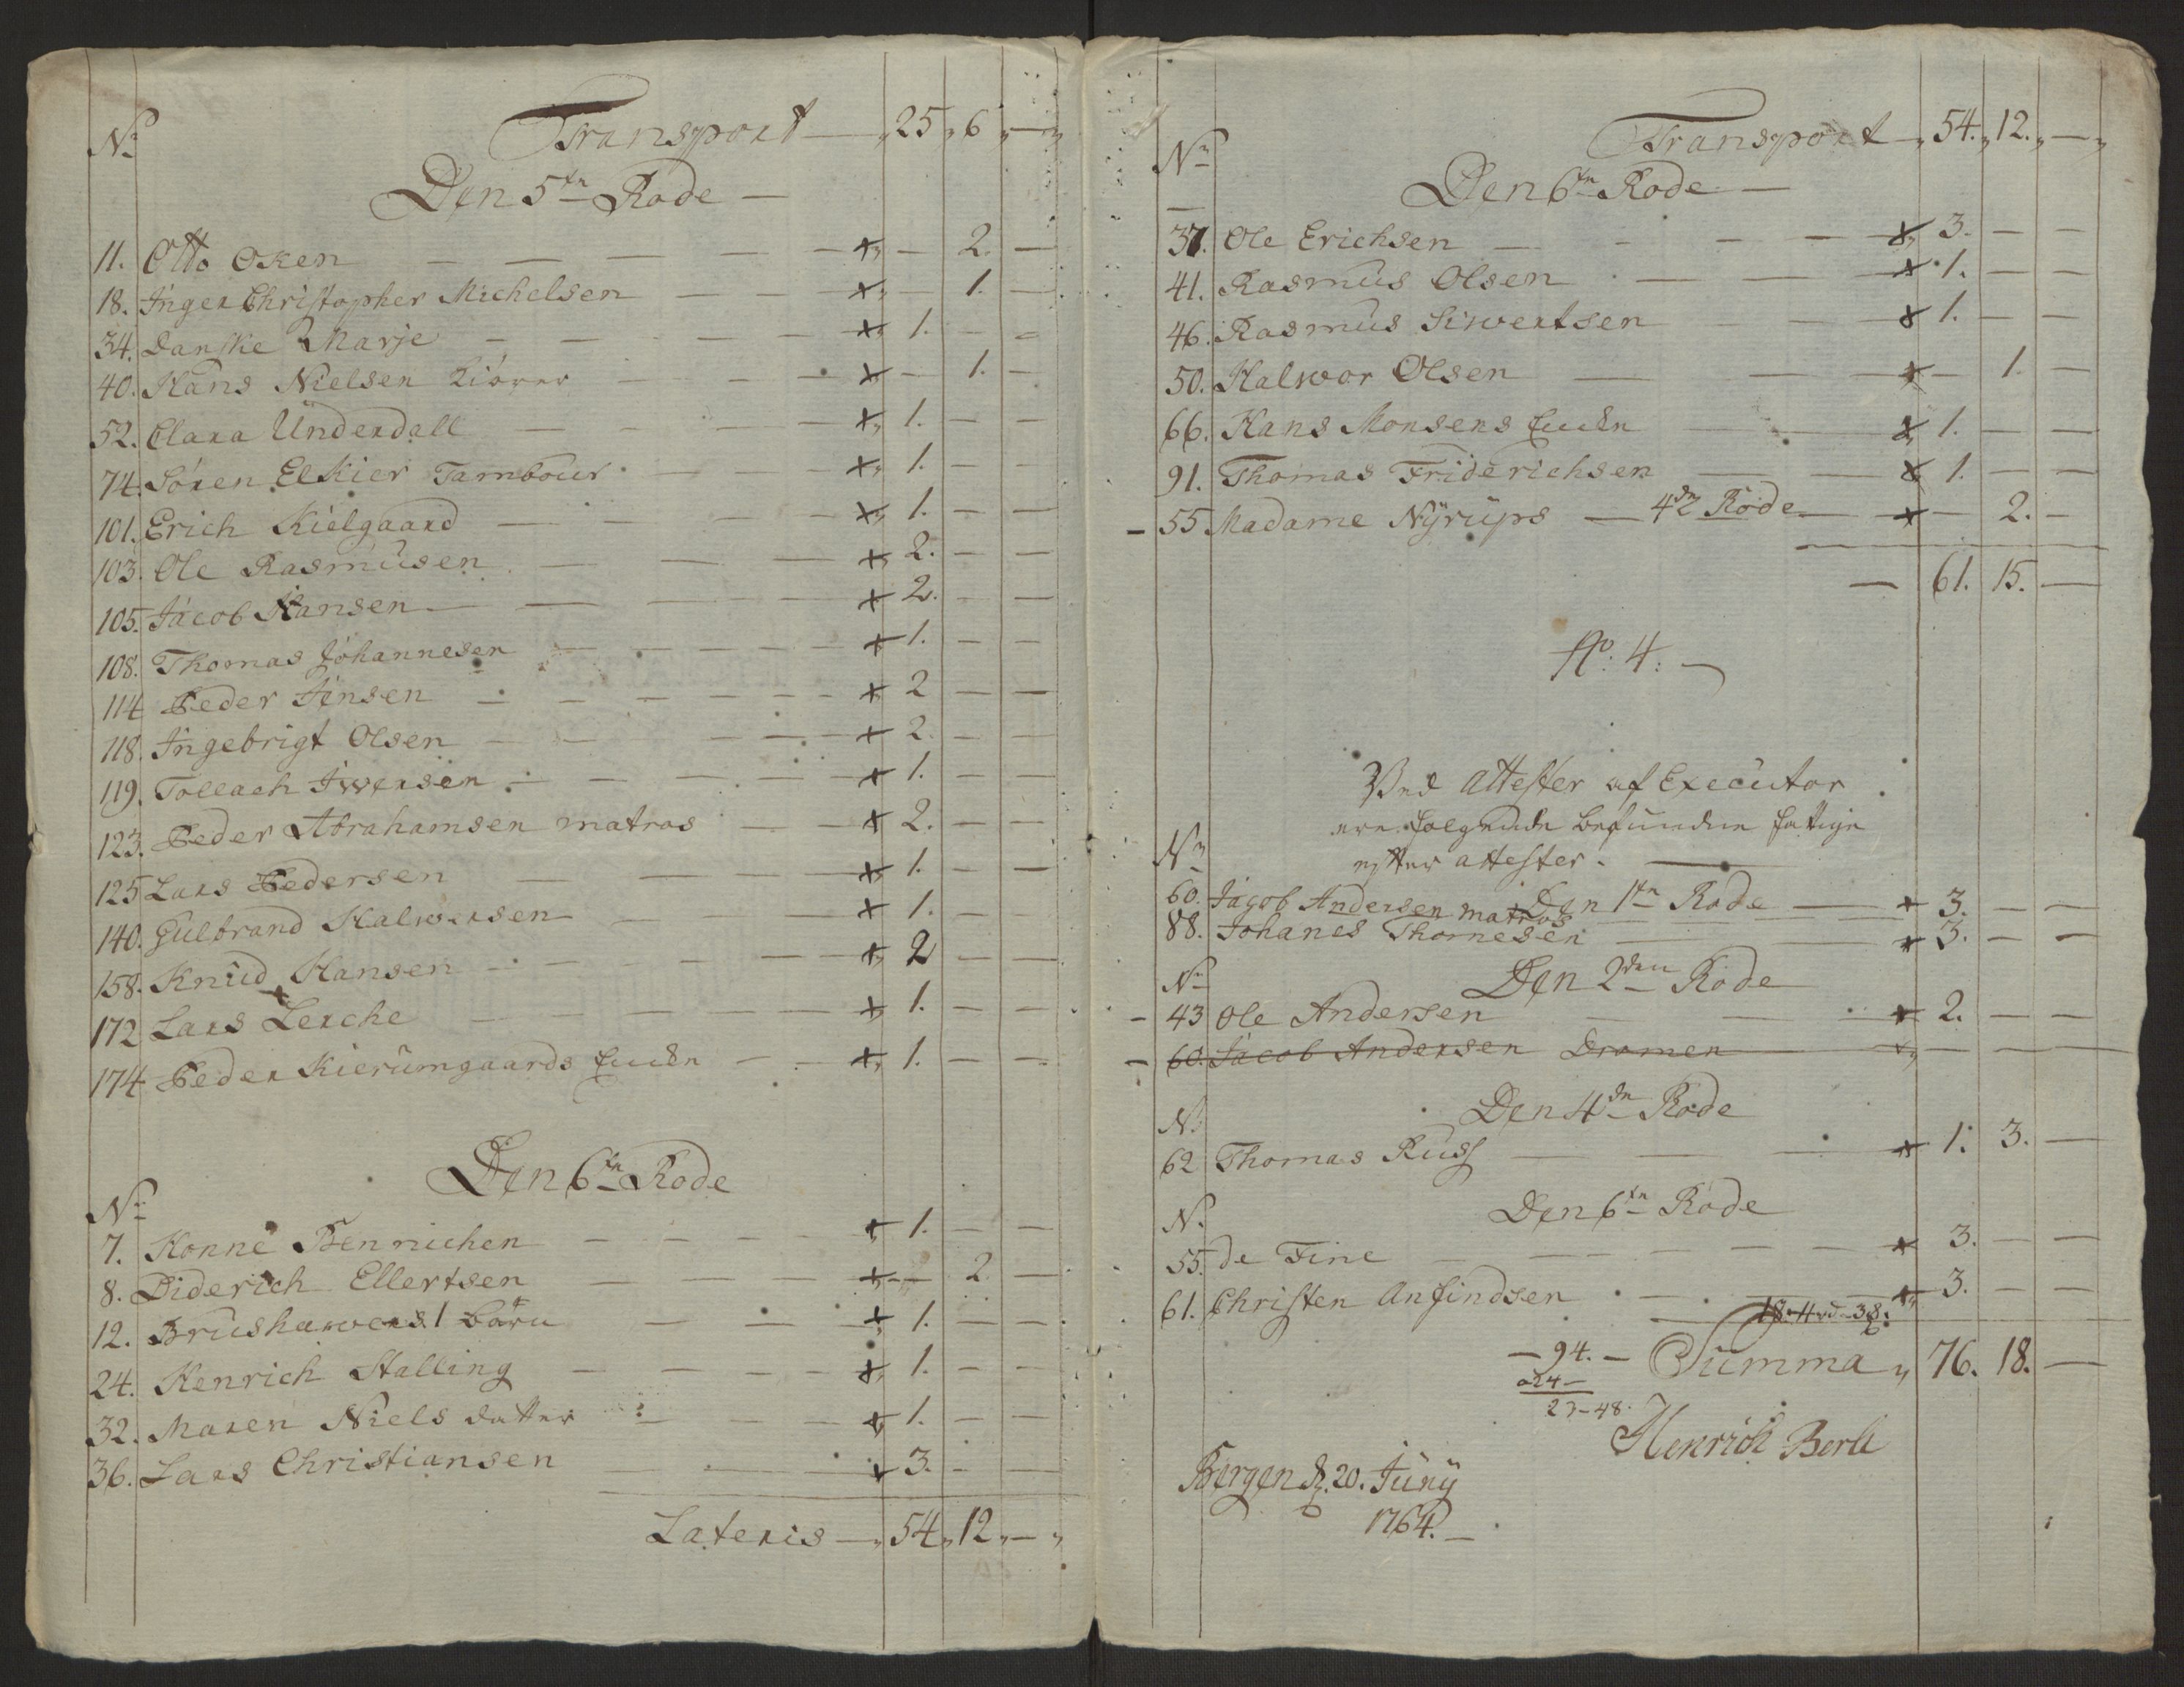 No Transport — „ 25 „ 6 „ — „
Den 5te Rode —
11. Otto Oken — — 2. —
18. Inger Christopher Michelsen — — 1. —
34. Danske Marje — 1. — —
40. Hans Nielsen — — 1. —
52. Clara Underdall — 1. — —
74. Sören Elkier Tambour — 1. — —
101. Erich Kielgaard — 1. — —
103. Ole Rasmusen — 2. — —
105. Jacob Hansen — 2. — —
108. Thomas Johannesen — 1. — —
114 Peder Jensen — 2 — —
118. Ingebrigt Olsen — 2. — —
119. Tollach Iwersen — 1. — —
123. Peder Abrahamsen matros — 2. — —
125 Lars Pedersen — 1. — —
140. Gulbrand Halworsen — 1. — —
158. Knud Hansen — 2 — —
172 Lars Lerche — 1. — —
174 Peder Kierumgaards Encke — 1. — —
Den 6te Rode
No
7. Konne Bennichen — 1. — —
8. Diderich Ellertsen — — 2. —
12. Brushawers 1 barn — 1. — —
24. Henrich Stalling — 1. — —
32. Maren Niels datter — 1. — —
36. Lars Christiansen — 3. — —
Lateris — „ 54 „ 12 „ — „
No Transport „ 54. „ 12. „ — „
Den 6te Rode —
37. Ole Erichsen — 3. — —
41. Rasmus Olsen — 1. — —
46. Rasmus Siwertsen — 1. — —
50. Halwor Olsen — — 1. —
66. Hans Monsens Encke — 1. — —
91. Thomas Friderichsen — 1. — —
55 Madame Nÿrups — 4de Rode — — 2. —
— 61. 15. —
No: 4: —
Ved Attester af Executor
ere følgende befundne fattige
efter attester. —
No
60. Jagob Andersen matros Den 1te Rode — 3. — —
88. Johanes Thomesen — 3. — —
No Den 2den Rode
43 Ole Andersen — 2. — —
60. Jacob Andersen Dramen — — —
N. Den 4de Rode
62 Thomas Russ — 1. 3. —
N. Den 6te Rode
55. de Fine — 3. — —
61. Christen Anfindsen — 3. — —
— 94. — Summa „ 76. 18. —
a 24 —
23 – 48.
Henrich Berli
Bergen d. 20. Junÿ
1764. —